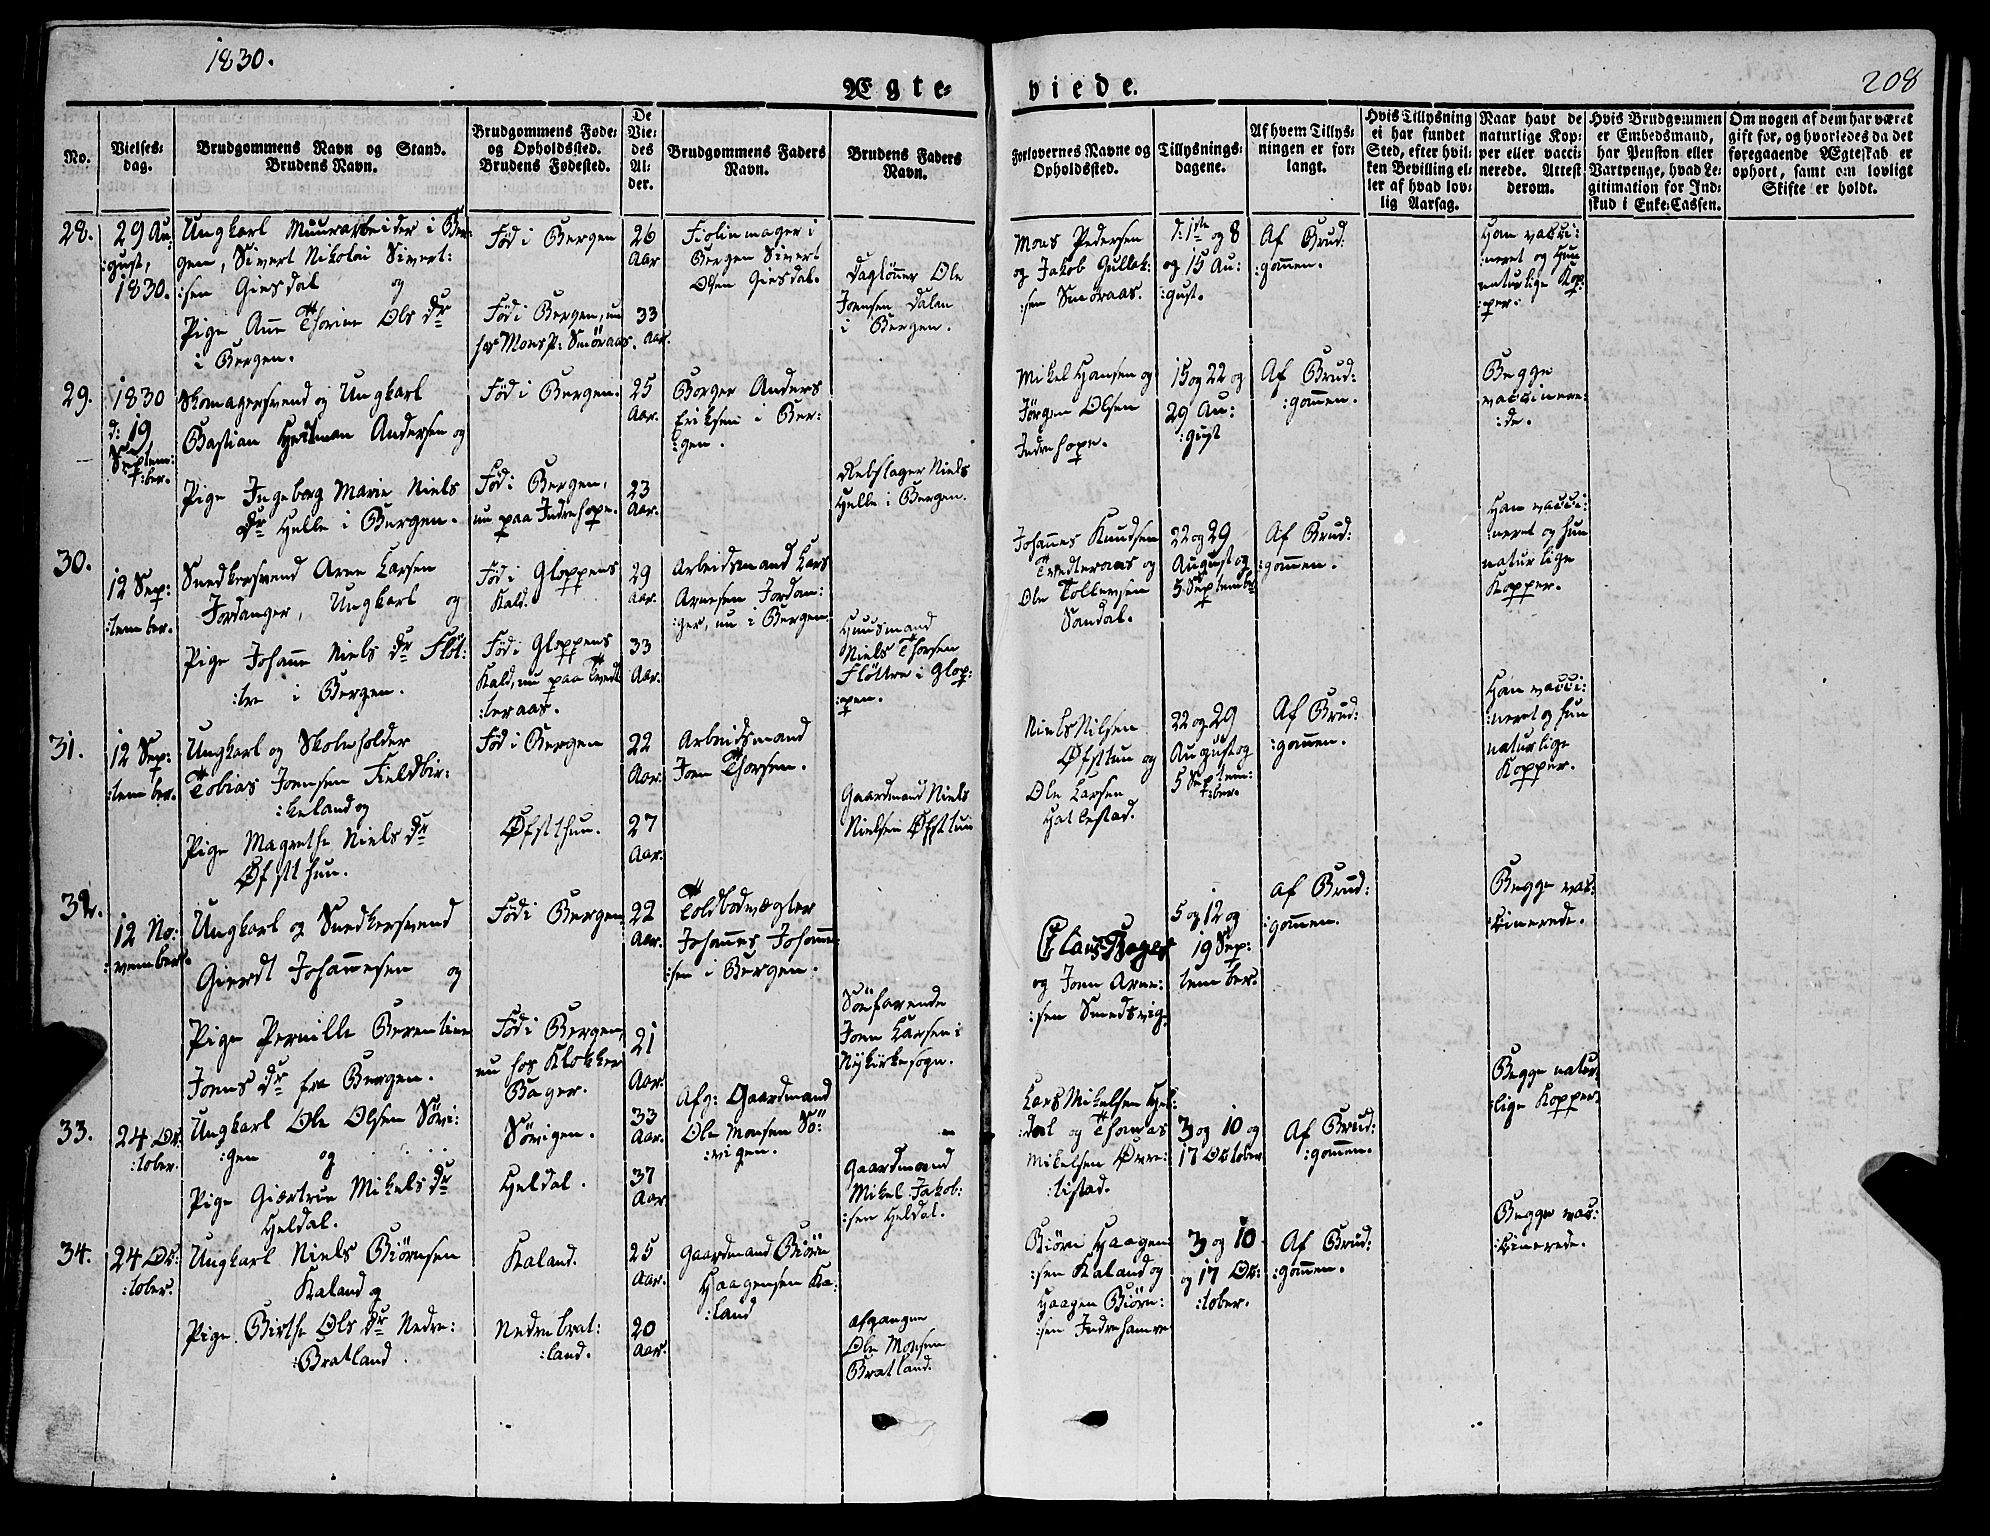 1830.
208
Ægte-
viede.
No.
Vielses-
dag.
Brudgommens Navn og Stand.
Brudens Navn.
Brudgommens Føde-
og Opholdssted.
Brudens Fødested.
De
Vie-
des
Al-
der.
Brudgommens Faders
Navn.
Brudens Faders
Navn.
Forlovernes Navne og
Opholdssted.
Tillysnings-
dagene.
Af hvem Tillys-
ningen er for-
langt.
Hvis Tillysning
ei har fundet
Sted, efter hvil-
ken Bevilling el-
ler af hvad lov-
lig Aarsag.
Naar havt de
naturlige Kop-
per eller vacci-
nerede. Attest
derom.
Hvis Brudgommen
er Embedsmand,
har Penston eller
Vartpenge, hvad Le-
gitimation for Ind-
skud i Enke-Cassen.
Om nogen af dem har været
gift før, og hvorledes da det
foregaaende Ægteskab er
ophørt, samt om lovligt
Skifte er holdt.
28.
29 Au:
:gust,
1830.
Ungkarl Muurarbeider i Ber:
gen, Sivert Nikolai Sivert:
:sen Giesdal og
Pige Ane Thorine Ols Dr
i Bergen.
Fød i Bergen
Fød i Bergen, nu
hos Mons P: Smøraas.
26
Aar
33
Aar.
Fiolinmager i
Bergen Sivert
Olsen Giesdal.
Dagløner Ole
Joensen Dalen
i Bergen.
Mons Pedersen
og Jakob Gullak:
:sen Smøraas.
d: 1ste og 8
og 15 Au:
:gust.
Af Brud:
:gommen.
Han vacci:
:neret og Hun
naturlige Kop:
:per.
29.
1830
d: 19
Septem:
:ber.
Skomagersvend og Ungkarl
Bastian Andersen og
Pige Ingeborg Marie Niels
Dr Helle i Bergen.
Fød i Bergen.
Fød i Bergen,
nu paa Indrehope.
25
Aar.
23
Aar.
Borger Anders
Eriksen i Ber:
:gen.
Rebslager Niels
Helle i Bergen.
Mikel Hansen og
Jørgen Olsen
Indrehope.
15 og 22 og
29 Au:
:gust
Af Brud:
:gommen.
Begge
vaccinere:
:de.
30.
12 Sep:
:tember.
Snedkersvend Arne Larsen
Jordanger, Ungkarl og
Pige Johanne Niels Dr Fløt:
:tre i Bergen.
Fød i Gloppens
Kald.
Fød i Gloppens
Kald, nu paa Tvedt
:teraas.
29
Aar.
33
Aar.
Arbeidsmand Lars
Arnesen Jordan:
:ger, nu i Bergen.
Huusmand
Niels Thorsen
Fløttre i Glop:
:pen.
Johannes Knudsen
Tvedteraas og
Ole Tollevsen
Sandal.
22 og 29
August og
5 Septembr
Af Brud:
:gommen.
Han vacci:
:neret og hun
naturlige
Kopper.
31.
12 Sep:
:tember.
Ungkarl og Skoleholder
Tobias Joensen Fieldbir:
:keland og
Pige Magrethe Niels Dr
Øfstthun.
Fød i Bergen
Øfstthun.
22
Aar.
27
Aar.
Arbeidsmand
Joen Thorsen.
Gaardmand Niels
Nielsen Øfsttun
Niels Nilsen
Øfsttun og
Ole Larsen
Hatlestad.
22 og 29
August og
5 Septem:
:ber.
Af Brud:
:gommen.
Han vacci:
:neret og hun
naturlige
Kopper.
32.
12 No:
:vember.
Ungkarl og Snedkersvend
Gierdt Johannesen og
Pige Pernille Berentine
Joens Dr fra Bergen.
Fød i Bergen
Fød i Bergen,
nu hos Klokker
Bager.
22
Aar.
21
Aar.
Toldbodvægter
Johannes Johanne:
:sen i Bergen.
Søefarende
Joen Larsen i
Nykirkesogn.
Claus Bager
og Joen Arne:
:sen Smedsvig.
5 og 12 og
19 Sep:
tember.
Af Brud:
:gommen.
Begge vac:
:cinerede.
33.
24 Oc:
:tober.
Ungkarl Ole Olsen Søvi:
:gen og
Pige Giærtrue Mikels Dr
Heldal.
Søvigen.
Heldal.
33
Aar.
37
Aar
Afg: Gaardmand
Ole Monsen Sø:
:vigen.
Gaardmand
Mikel Jakob:
:sen Heldal.
Lars Mikelsen Hel:
:dal og Thomas
Mikelsen Øvre:
:tistad.
3 og 10 og
17 October
Af Brud:
:gommen.
Begge natur
:lige Kopper.
34.
24 Oc:
:tober.
Ungkarl Niels Biørnsen
Kaland og
Pige Birthe Ols Dr Nedre:
:Bratland.
Kaland.
Nedrebrat:
:land.
25
Aar.
20
Aar.
Gaardmand Biørn
Haagensen Ka:
:land
afgangne
Ole Monsen
Bratland.
Biørn Haagen:
:sen Kaland og
Haagen Biørn:
:sen Indrehamre
3 og 10
og 17 Oc:
:tober.
Af Brud:
:gommen.
Begge vac:
:cinerede.